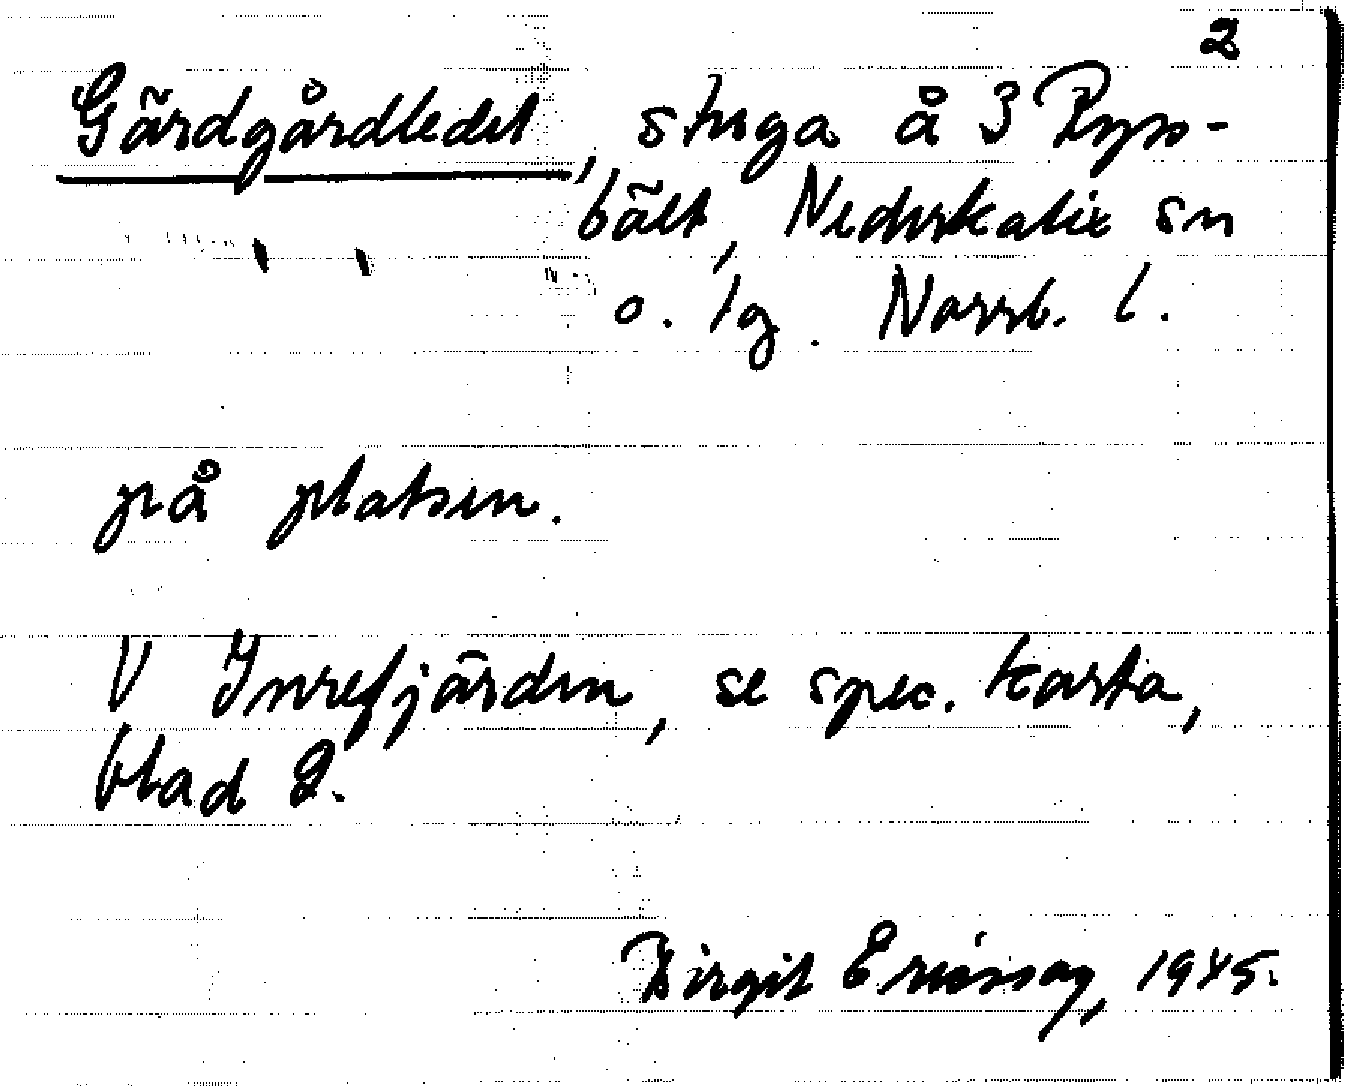 2
Gärdgårdledet, stuga å 3 Ryss-
bält, Nederkalix sn
o. lg. Norrb. l.
på platsen.
V Inrefjärden, se spec. karta,
blad 2.
Birgit Ericsson, 1945.